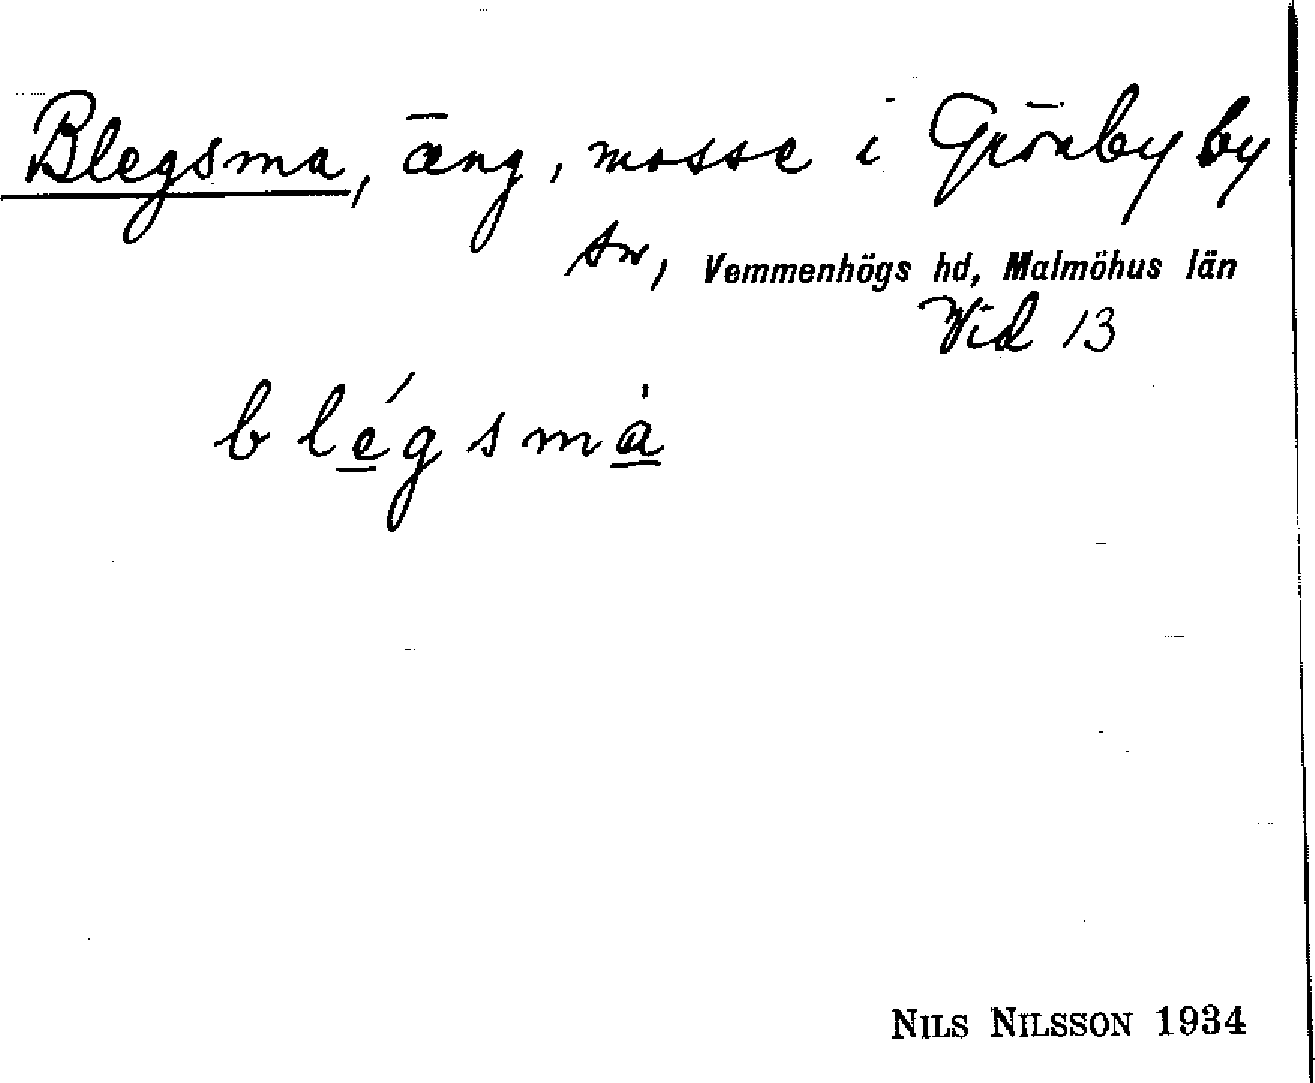 Blegsma, äng, mosse i Grönby by
sn, Vemmenhögs hd, Malmöhus län
Vid 13
blégsmà
NILS NILSSON 1934